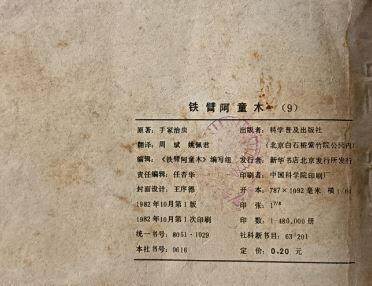 铁臂阿童木 (9)
原著：手冢治虫 出版者：科学普及出版社
翻译：周斌 姚佩君 (北京白石桥紫竹院公园内)
编辑：《铁臂阿童木》编写组 发行者：新华书店北京发行所发行
责任编辑：任青华 印刷者：中国科学院印刷厂
封面设计：王序德 开本：787×1092毫米 横1/
1982年10月第1版 印张：1 7/8
1982年10月第1次印刷 印数：1—480,000册
统一书号：8051·1029 社科新书目：63—201
本社书号：0616 定价：0.20元